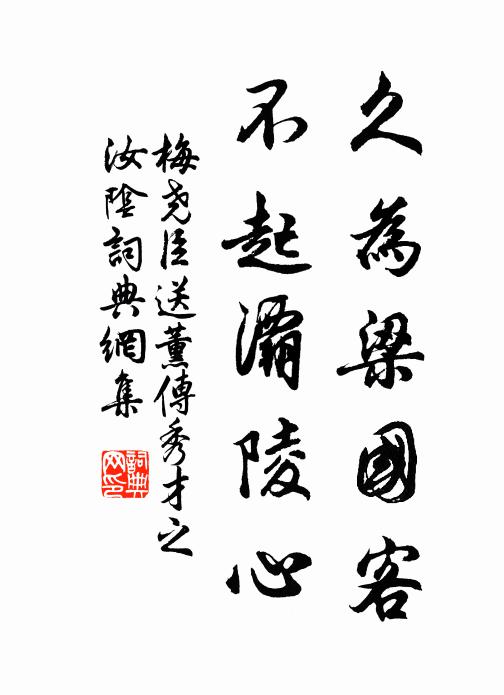 久為梁國客
不起灞陵心
梅堯臣送薰傳秀才之
汝陰詞典網集
詞典
网印